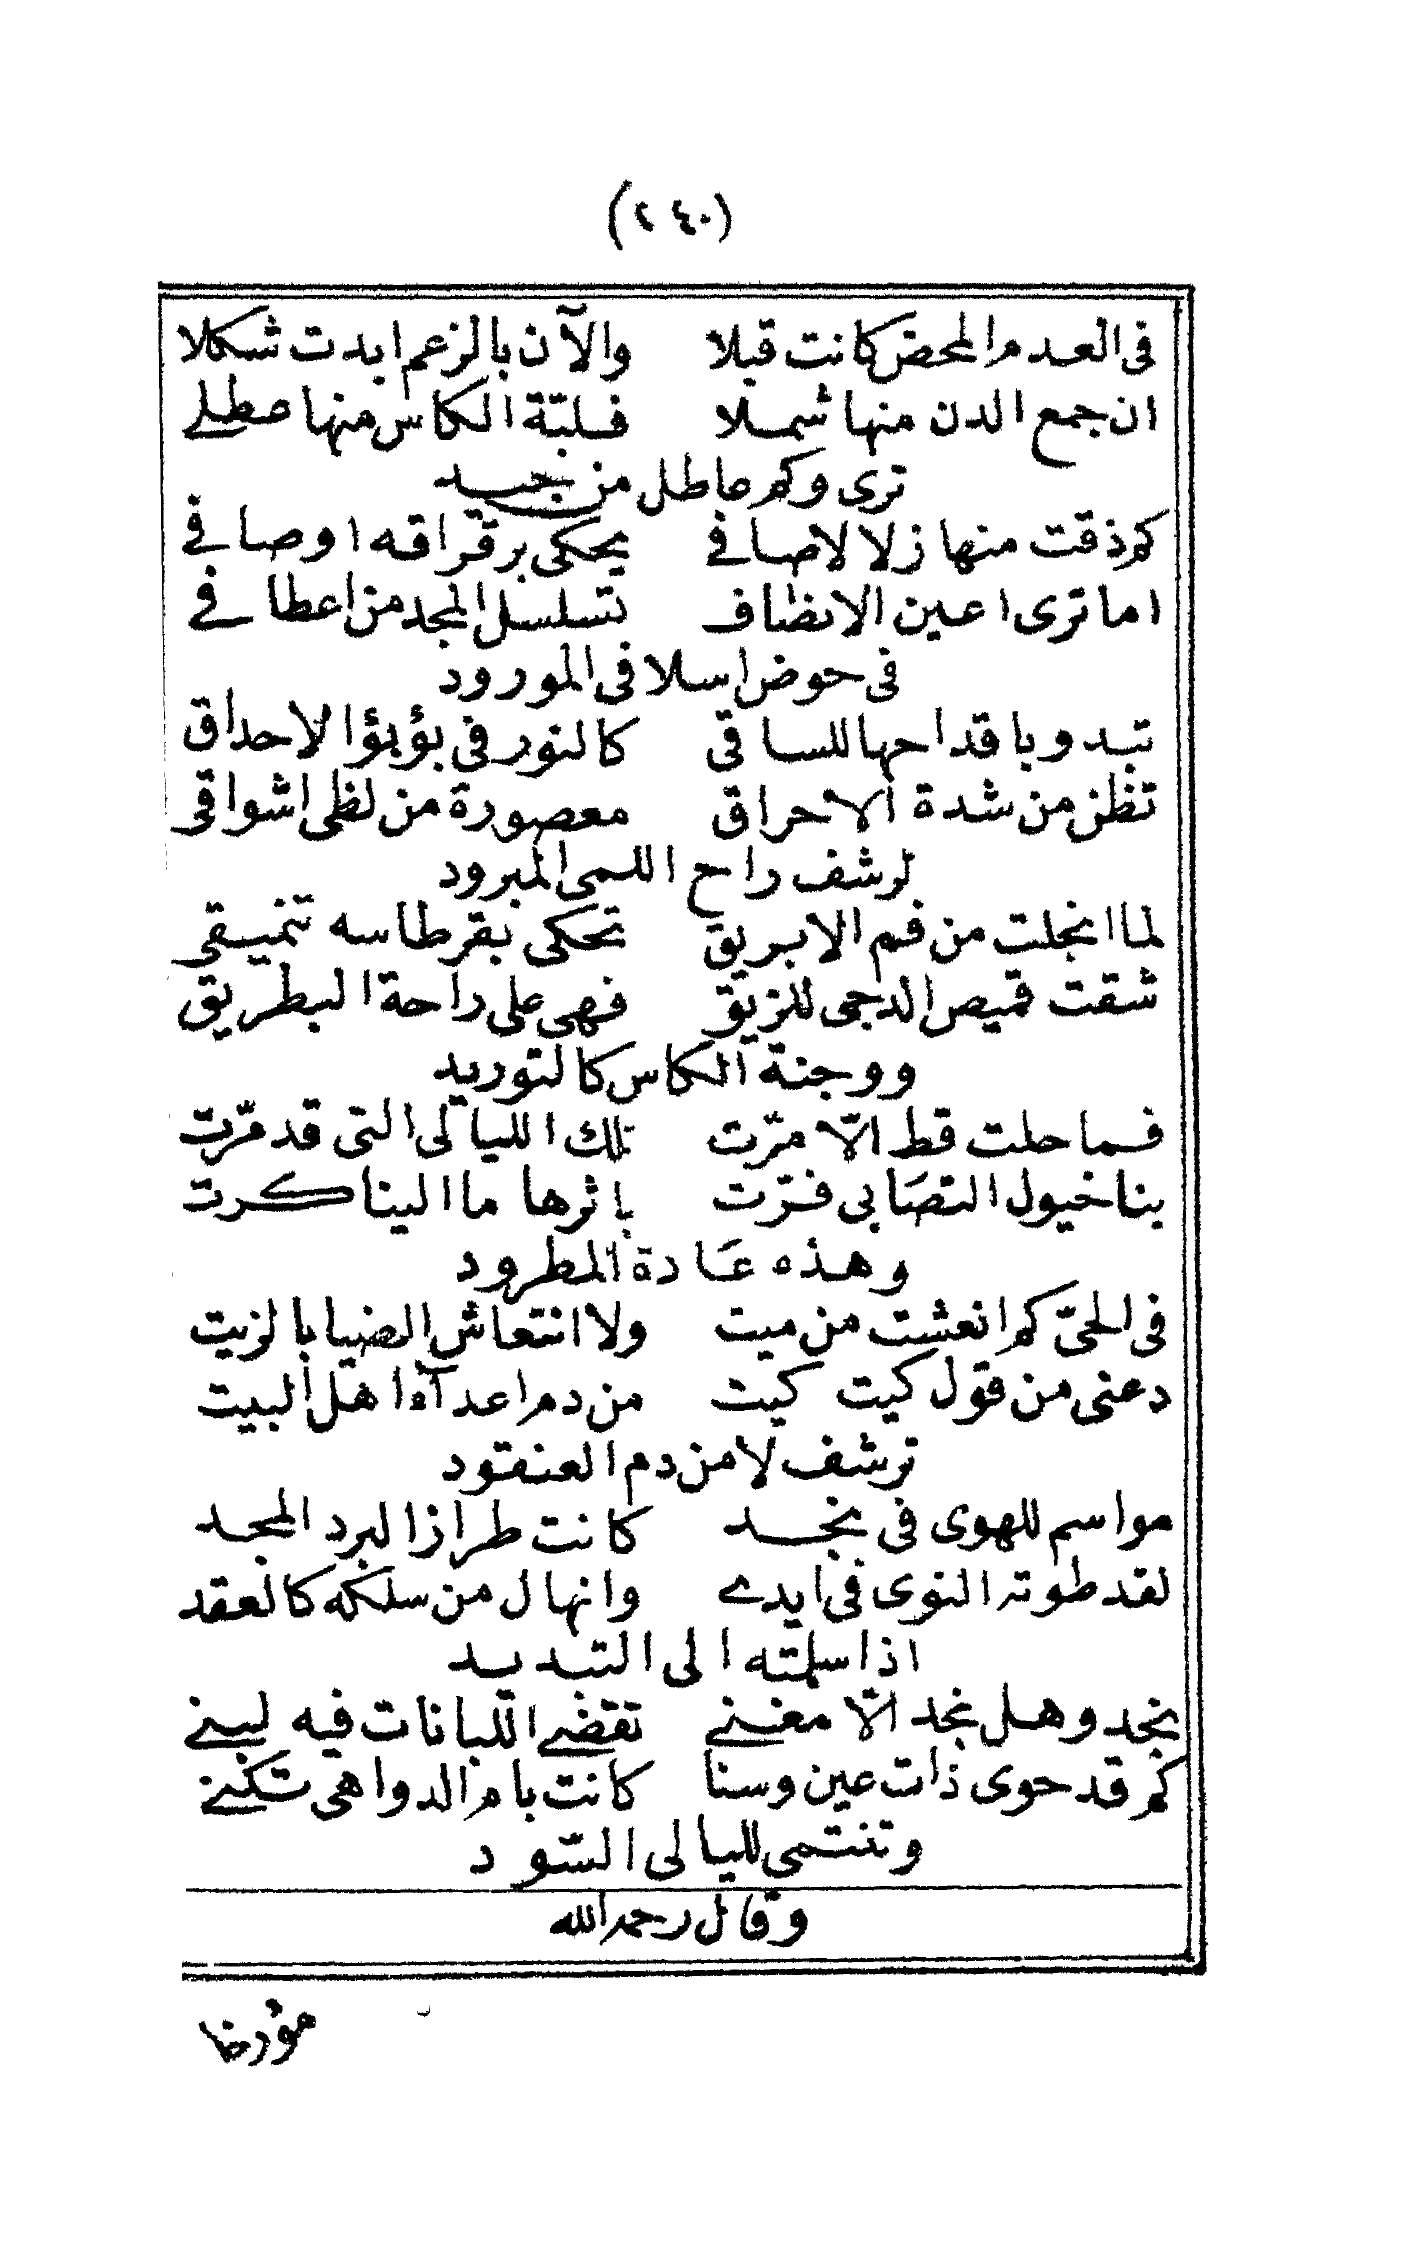 (٢٤٠)
في العدم المحض كانت قبلا والآن بالزعم ابدت شكلا
ان جمع الدن منها شملا فلبّة الكاس منها عطلے
ترى وكم عاطل من جيد
كم ذقت منها زلالا صافے يحكى برقراقه اوصافے
اما ترى اعين الانصاف تسلسل المجد من اعطافے
في حوض اسلافى المورود
تبدو باقداحها للساقي كالنور في بؤبؤ الاحداق
تظن من شدة الاحراق معصورة من لظى اشواقي
لرشف راح اللمى المبرود
لما انجلت من فم الابريق تحكى بقرطاسه تنميقي
شقت قميص الدجى للزيق فهى على راحة البطريق
ووجنة الكاس كالتوريد
فما حلت قط الّا مرّت تلك الليالى التى قد مرّت
بنا خيول التصابي فرّت باثرها ما الينا كرت
وهذه عادة المطرود
في الحيّ كم انعشت من ميت ولا انتعاش الضيا بالزيت
دعنى من قول كيت كيت من دم اعدآء اهل البيت
ترشف لا من دم العنقود
مواسم للهوى في نجد كانت طراز البرد المجد
لقد طوته النوى في ايدے وانهال من سلكه كالعقد
اذا سلمته الى التبديد
نجد وهل نجد الّا مغنے تقضے اللبانات فيه لبنے
كم قد حوى ذات عين وسنا كانت بام الدواهي تكنے
وتنتمى لليالى السّود
وقال رحمه الله
مؤرخا